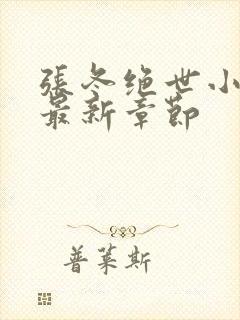 張冬绝世小
最新章節
普莱斯